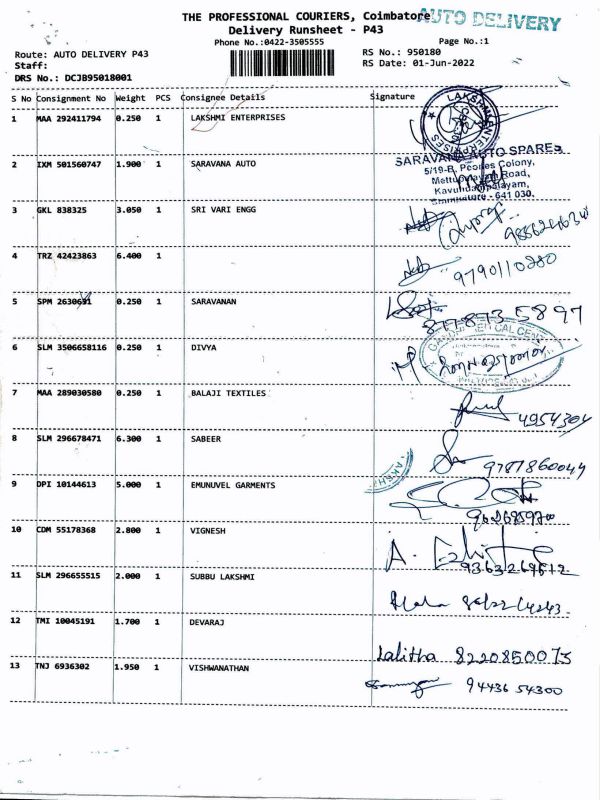 THE PROFESSIONAL COURIERS, Coimbatore
AUTO DELIVERY
Delivery Runsheet - P43
Phone No.:0422-3505555
Page No.:1
Route: AUTO DELIVERY P43
RS No.: 950180
Staff:
RS Date: 01-Jun-2022
DRS No.: DCJB95018001
S No Consignment No Weight PCS Consignee Details Signature
1 MAA 292411794 0.250 1 LAKSHMI ENTERPRISES
LAKSHMI ENTERPRISES
2 IXM 501560747 1.900 1 SARAVANA AUTO
SARAVANA AUTO SPARES
5/19-B, Peoples Colony,
Mettupalayam Road,
Kavundampalayam,
Coimbatore - 641 030.
3 GKL 838325 3.050 1 SRI VARI ENGG
4 TRZ 42423863 6.400 1
9790110280
5 SPM 2630691 0.250 1 SARAVANAN
6 SLM 3506658116 0.250 1 DIVYA
7 MAA 289030580 0.250 1 BALAJI TEXTILES
4954304
8 SLM 296678471 6.300 1 SABEER
9787860044
9 DPI 10144613 5.000 1 EMUNUVEL GARMENTS
LAKSH
9626859700
10 CDM 55178368 2.800 1 VIGNESH
9363269612
11 SLM 296655515 2.000 1 SUBBU LAKSHMI
12 TMI 10045191 1.700 1 DEVARAJ
Lalitha 8220850073
13 TNJ 6936302 1.950 1 VISHWANATHAN
94436 54300